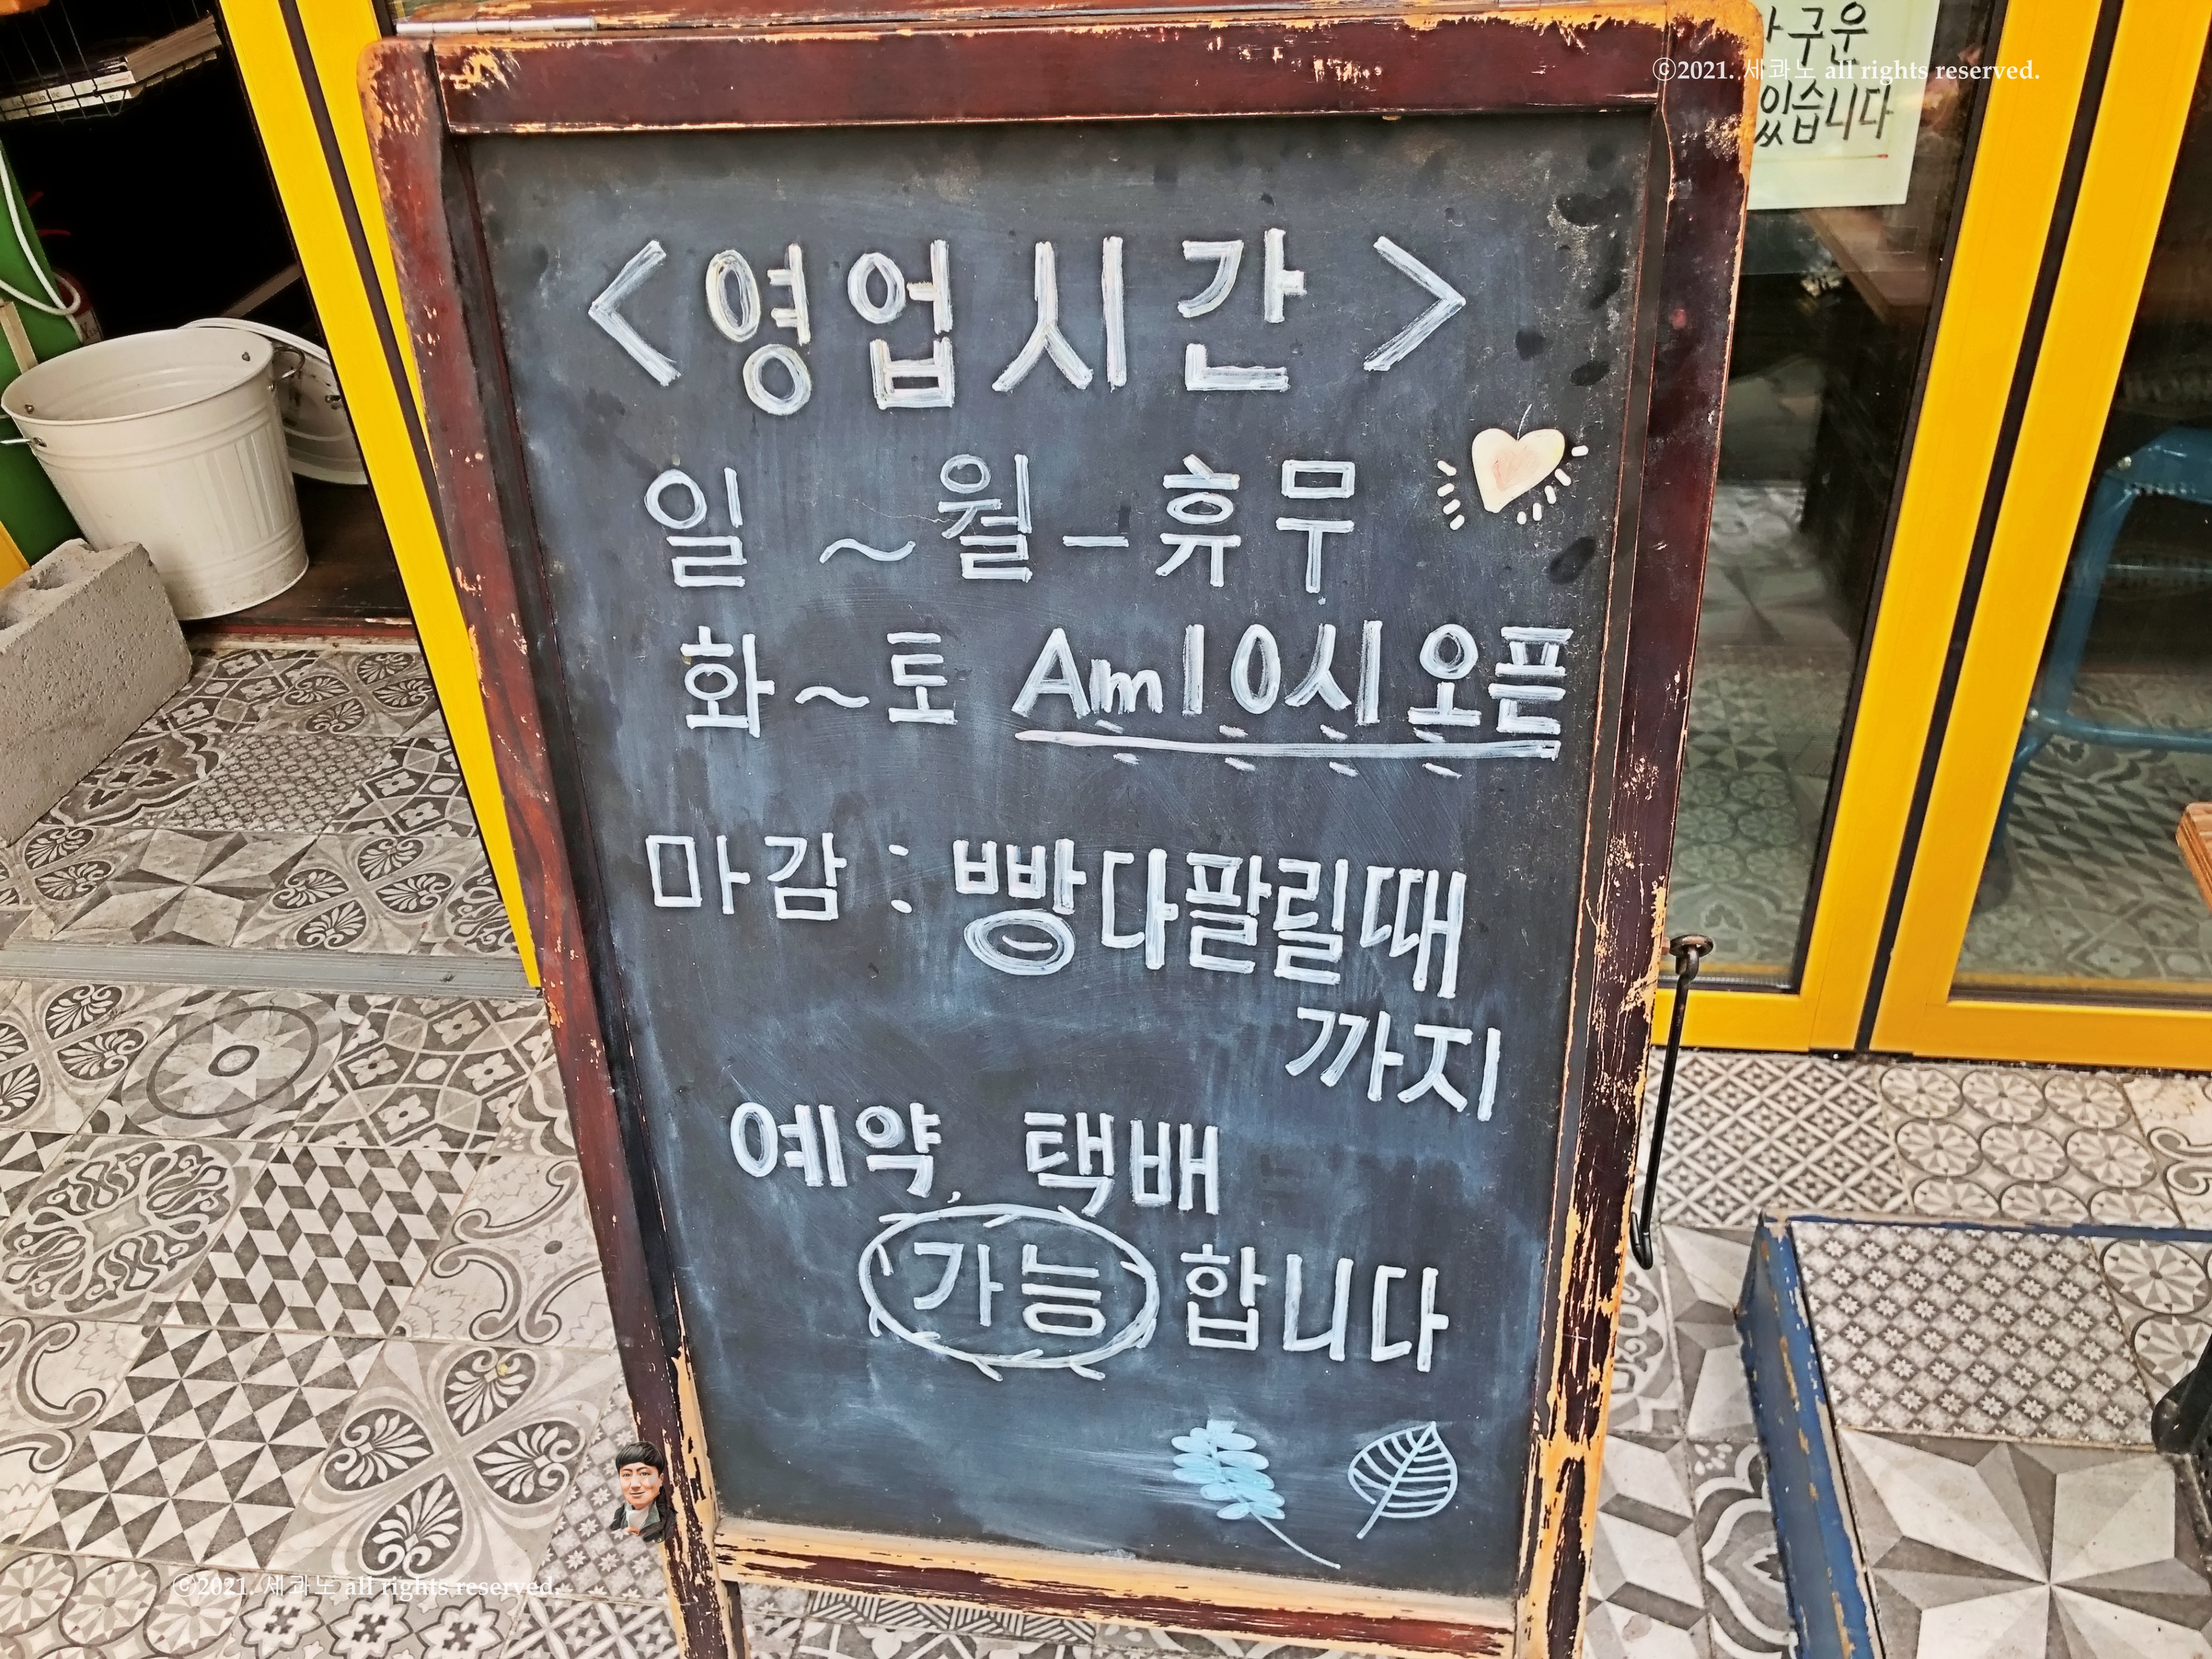 구운
있습니다
©2021. 세콰노 all rights reserved.
<영업시간>
일 ~ 월 - 휴무
화 ~ 토 Am10시오픈
마감 : 빵다팔릴때
까지
예약, 택배
가능 합니다
©2021. 세콰노 all rights reserved.